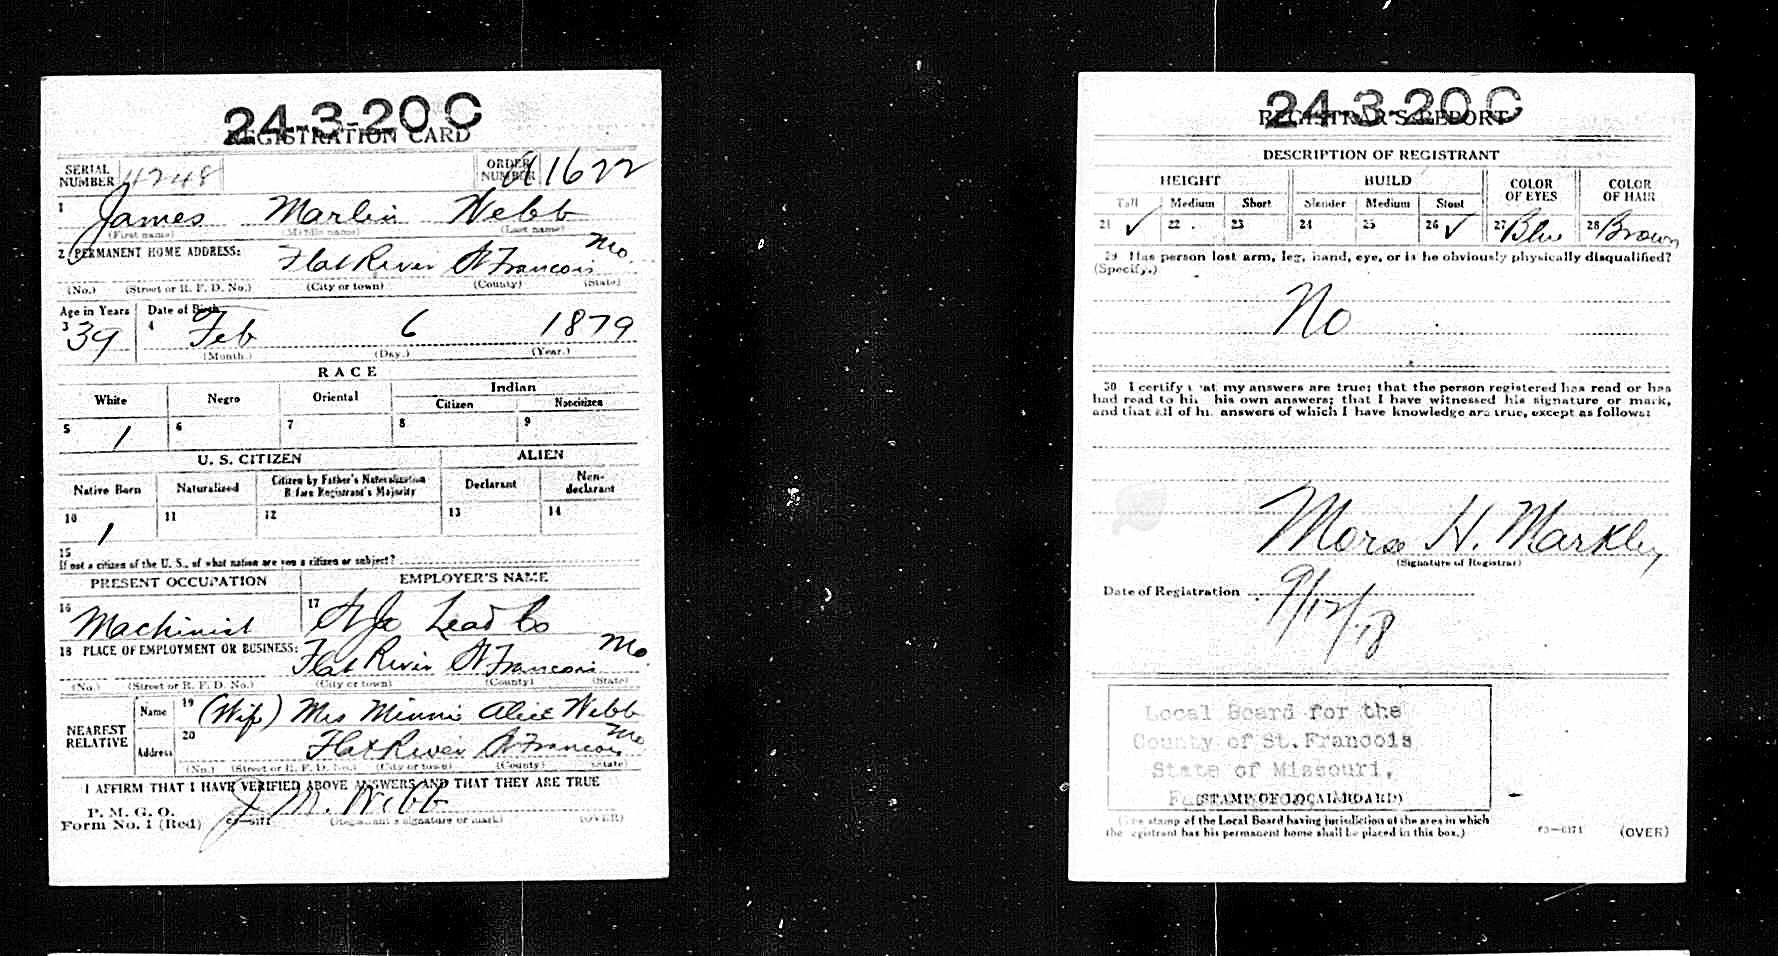 24-3-20 C
REGISTRATION CARD
SERIAL NUMBER 4248 ORDER NUMBER A1622
1 James Marlin Webb
(First name) (Middle name) (Last name)
2 PERMANENT HOME ADDRESS: Flat River St Francois Mo.
(No.) (Street or R. F. D. No.) (City or town) (County) (State)
Age in Years Date of Birth
3 39 4 Feb 6 1879
(Month.) (Day.) (Year.)
RACE
White Negro Oriental Indian
Citizen Noncitizen
5 1 6 7 8 9
U. S. CITIZEN ALIEN
Native Born Naturalized Citizen by Father's Naturalization Before Registrant's Majority Declarant Non-declarant
10 1 11 12 13 14
15
If not a citizen of the U. S., of what nation are you a citizen or subject?
PRESENT OCCUPATION EMPLOYER'S NAME
16 Machinist 17 St Jo Lead Co
18 PLACE OF EMPLOYMENT OR BUSINESS: Flat River St Francois Mo.
(No.) (Street or R. F. D. No.) (City or town) (County) (State)
NEAREST RELATIVE
Name 19 (Wife) Mrs Minnie Alice Webb
Address 20 Flat River St Francois Mo
(No.) (Street or R. F. D. No.) (City or town) (County) (State)
I AFFIRM THAT I HAVE VERIFIED ABOVE ANSWERS AND THAT THEY ARE TRUE
P. M. G. O.
Form No. 1 (Red) J. M. Webb
03—6171 (Registrant's signature or mark) (OVER)
24-3-20 C
REGISTRAR'S REPORT
DESCRIPTION OF REGISTRANT
HEIGHT BUILD COLOR OF EYES COLOR OF HAIR
Tall Medium Short Slender Medium Stout
21 ✓ 22 23 24 25 26 ✓ 27 Blue 28 Brown
29 Has person lost arm, leg, hand, eye, or is he obviously physically disqualified?
(Specify.)
No
30 I certify that my answers are true; that the person registered has read or has
had read to him his own answers; that I have witnessed his signature or mark,
and that all of his answers of which I have knowledge are true, except as follows:
Morse H. Markley
(Signature of Registrar)
Date of Registration 9/12/18
Local Board for the
County of St. Francois
State of Missouri,
(STAMP OF LOCAL BOARD)
(The stamp of the Local Board having jurisdiction of the area in which
the registrant has his permanent home shall be placed in this box.)
03—6171 (OVER)